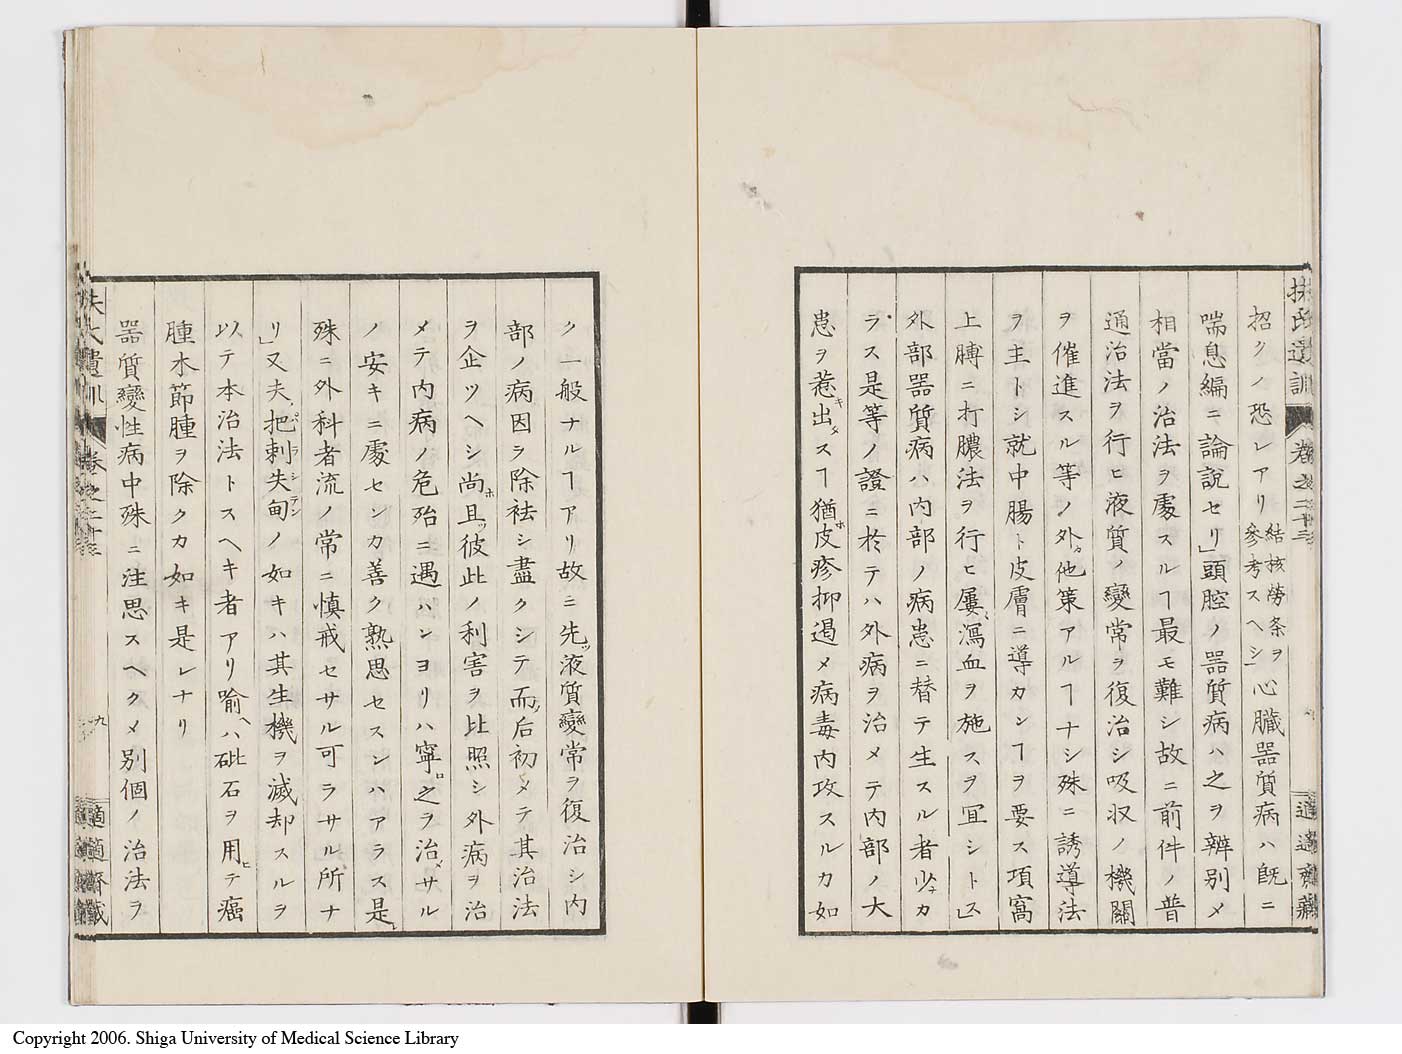 扶氏遺訓 卷之二十三
適適齋藏
招クノ恐レアリ結核癆条ヲ参考スヘシ」心臓器質病ハ既ニ
喘息編ニ論説セリ」頭腔ノ器質病ハ之ヲ辨别メ
相當ノ治法ヲ處スルヿ最モ難シ故ニ前件ノ普
通治法ヲ行ヒ液質ノ變常ヲ復治シ吸収ノ機關
ヲ催進スル等ノ外カ他策アルヿナシ殊ニ誘導法
ヲ主トシ就中腸ト皮膚ニ導カンヿヲ要ス項窩
上膊ニ打膿法ヲ行ヒ屢瀉血ヲ施スヲ冝シトス」
外部器質病ハ内部ノ病患ニ替テ生スル者少ナカ
ラス是等ノ證ニ於テハ外病ヲ治メテ内部ノ大
患ヲ惹キ出メスヿ猶ホ皮疹抑遏メ病毒内攻スルカ如
ク一般ナルヿアリ故ニ先ツ液質變常ヲ復治シ内
部ノ病因ラ除袪シ盡クシテ而ノ后初メテ其治法
ヲ企ツヘシ尚ホ且ツ彼此ノ利害ヲ比照シ外病ヲ治
メテ内病ノ危殆ニ遇ハンヨリハ寧ロ之ヲ治メサル
ノ安キニ處センカ善ク熟思セスンハアラス是レ
殊ニ外科者流ノ常ニ慎戒セサル可ラサル所ナ
リ」又夫把剌失甸パラシテンノ如キハ其生機ヲ滅却スルヲ
以テ本治法トスヘキ者アリ喻ヘハ砒石ヲ用ヒテ癌
腫水節腫ヲ除クカ如キ是レナリ
器質變性病中殊ニ注思スヘクメ別個ノ治法ヲ
扶氏遺訓 卷之二十三
九
適適齋藏
Copyright 2006. Shiga University of Medical Science Library